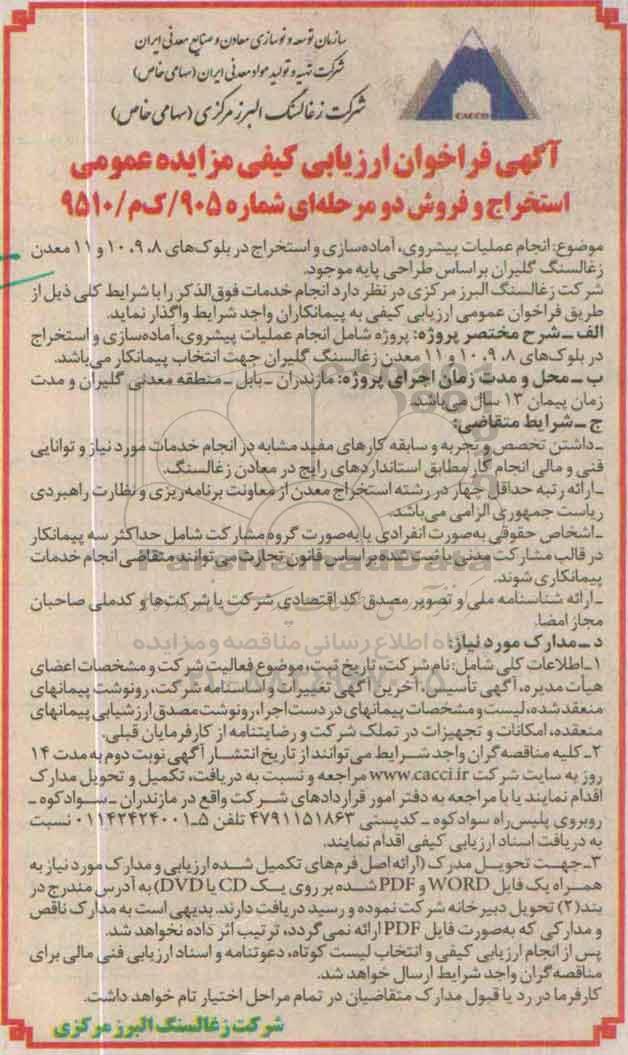 سازمان توسعه و نوسازی معادن و صنایع معدنی ایران
شرکت تهیه و تولید مواد معدنی ایران (سهامی خاص)
شرکت زغالسنگ البرز مرکزی (سهامی خاص)
CACCO
آگهی فراخوان ارزیابی کیفی مزایده عمومی
استخراج و فروش دو مرحله‌ای شماره ۹۰۵/ک‌م/۹۵۱۰
موضوع: انجام عملیات پیشروی، آماده‌سازی و استخراج در بلوک‌های ۸، ۹، ۱۰ و ۱۱ معدن
زغالسنگ گلیران براساس طراحی پایه موجود.
شرکت زغالسنگ البرز مرکزی در نظر دارد انجام خدمات فوق‌الذکر را با شرایط کلی ذیل از
طریق فراخوان عمومی ارزیابی کیفی به پیمانکاران واجد شرایط واگذار نماید.
الف ـ شرح مختصر پروژه: پروژه شامل انجام عملیات پیشروی، آماده‌سازی و استخراج
در بلوک‌های ۸، ۹، ۱۰ و ۱۱ معدن زغالسنگ گلیران جهت انتخاب پیمانکار می‌باشد.
ب ـ محل و مدت زمان اجرای پروژه: مازندران ـ بابل ـ منطقه معدنی گلیران و مدت
زمان پیمان ۱۳ سال می‌باشد.
ج ـ شرایط متقاضی:
ـ داشتن تخصص و تجربه و سابقه کارهای مفید مشابه در انجام خدمات مورد نیاز و توانایی
فنی و مالی انجام کار مطابق استانداردهای رایج در معادن زغالسنگ.
ـ ارائه رتبه حداقل چهار در رشته استخراج معدن از معاونت برنامه‌ریزی و نظارت راهبردی
ریاست جمهوری الزامی می‌باشد.
ـ اشخاص حقوقی به‌صورت انفرادی یا به‌صورت گروه مشارکت شامل حداکثر سه پیمانکار
در قالب مشارکت مدنی یا ثبت شده براساس قانون تجارت می‌توانند متقاضی انجام خدمات
پیمانکاری شوند.
ـ ارائه شناسنامه ملی و تصویر مصدق کد اقتصادی شرکت یا شرکت‌ها و کدملی صاحبان
مجاز امضا.
د ـ مدارک مورد نیاز:
۱ـ اطلاعات کلی شامل: نام شرکت، تاریخ ثبت، موضوع فعالیت شرکت و مشخصات اعضای
هیأت مدیره، آگهی تأسیس، آخرین آگهی تغییرات و اساسنامه شرکت، رونوشت پیمانهای
منعقد شده، لیست و مشخصات پیمانهای در دست اجرا، رونوشت مصدق ارزشیابی پیمانهای
منعقده، امکانات و تجهیزات در تملک شرکت و رضایتنامه از کارفرمایان قبلی.
۲ـ کلیه مناقصه‌گران واجد شرایط می‌توانند از تاریخ انتشار آگهی نوبت دوم به مدت ۱۴
روز به سایت شرکت www.cacci.ir مراجعه و نسبت به دریافت، تکمیل و تحویل مدارک
اقدام نمایند یا با مراجعه به دفتر امور قراردادهای شرکت واقع در مازندران ـ سوادکوه ـ
روبروی پلیس‌راه سوادکوه ـ کدپستی ۴۷۹۱۱۵۱۸۶۳ تلفن ۵ـ۰۱۱۴۲۴۲۴۰۰۱ نسبت
به دریافت اسناد ارزیابی کیفی اقدام نمایند.
۳ـ جهت تحویل مدرک (ارائه اصل فرم‌های تکمیل شده ارزیابی و مدارک مورد نیاز به
همراه یک فایل WORD و PDF شده بر روی یک CD یا DVD) به آدرس مندرج در
بند (۲) تحویل دبیرخانه شرکت نموده و رسید دریافت دارند. بدیهی است به مدارک ناقص
و مدارکی که به‌صورت فایل PDF ارائه نمی‌گردد، ترتیب اثر داده نخواهد شد.
پس از انجام ارزیابی کیفی و انتخاب لیست کوتاه، دعوتنامه و اسناد ارزیابی فنی مالی برای
مناقصه‌گران واجد شرایط ارسال خواهد شد.
کارفرما در رد یا قبول مدارک متقاضیان در تمام مراحل اختیار تام خواهد داشت.
شرکت زغالسنگ البرز مرکزی